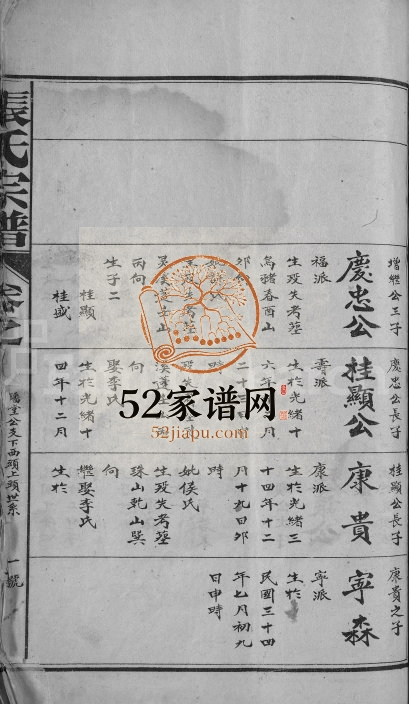 增繼公三子
慶忠公
福派
生歿失考塟
烏豬春酉山
卯向
丙向
生子二
桂顯
桂盛
慶忠公長子
桂顯公
壽派
生於光緒十
娶李氏
生於光緒十
四年十二月
桂顯公長子
康貴
康派
生於光緒三
十四年十二
月十九日卯
時
妣侯氏
生歿失考塟
珠山乾山巽
向
繼娶李氏
生於
康貴之子
寧森
寧派
生於
民國三十四
年七月初九
日申時
張氏宗譜
公支下西頭上頭世系
一號
52家谱网
52jiapu.com